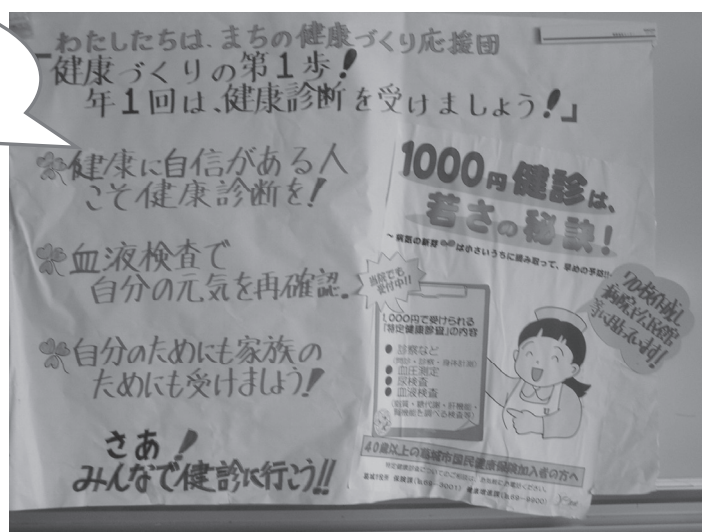 わたしたちは、まちの健康づくり応援団
「健康づくりの第1歩!
年1回は、健康診断を受けましょう!」
健康に自信がある人
こそ健康診断を!
血液検査で
自分の元気を再確認.
自分のためにも家族の
ためにも受けましょう!
さあ!
みんなで健診に行こう!!
1000円健診は、
若さの秘訣!
～病気の新芽は小さいうちに摘み取って、早めの予防!!
当院でも
受付中!!
1,000円で受けられる
「特定健康診査」の内容
● 診察など
(問診・診察・身体計測)
● 血圧測定
● 尿検査
● 血液検査
(脂質・糖代謝・肝機能・
腎機能を調べる検査等)
40歳以上の葛城市国民健康保険加入者の方へ